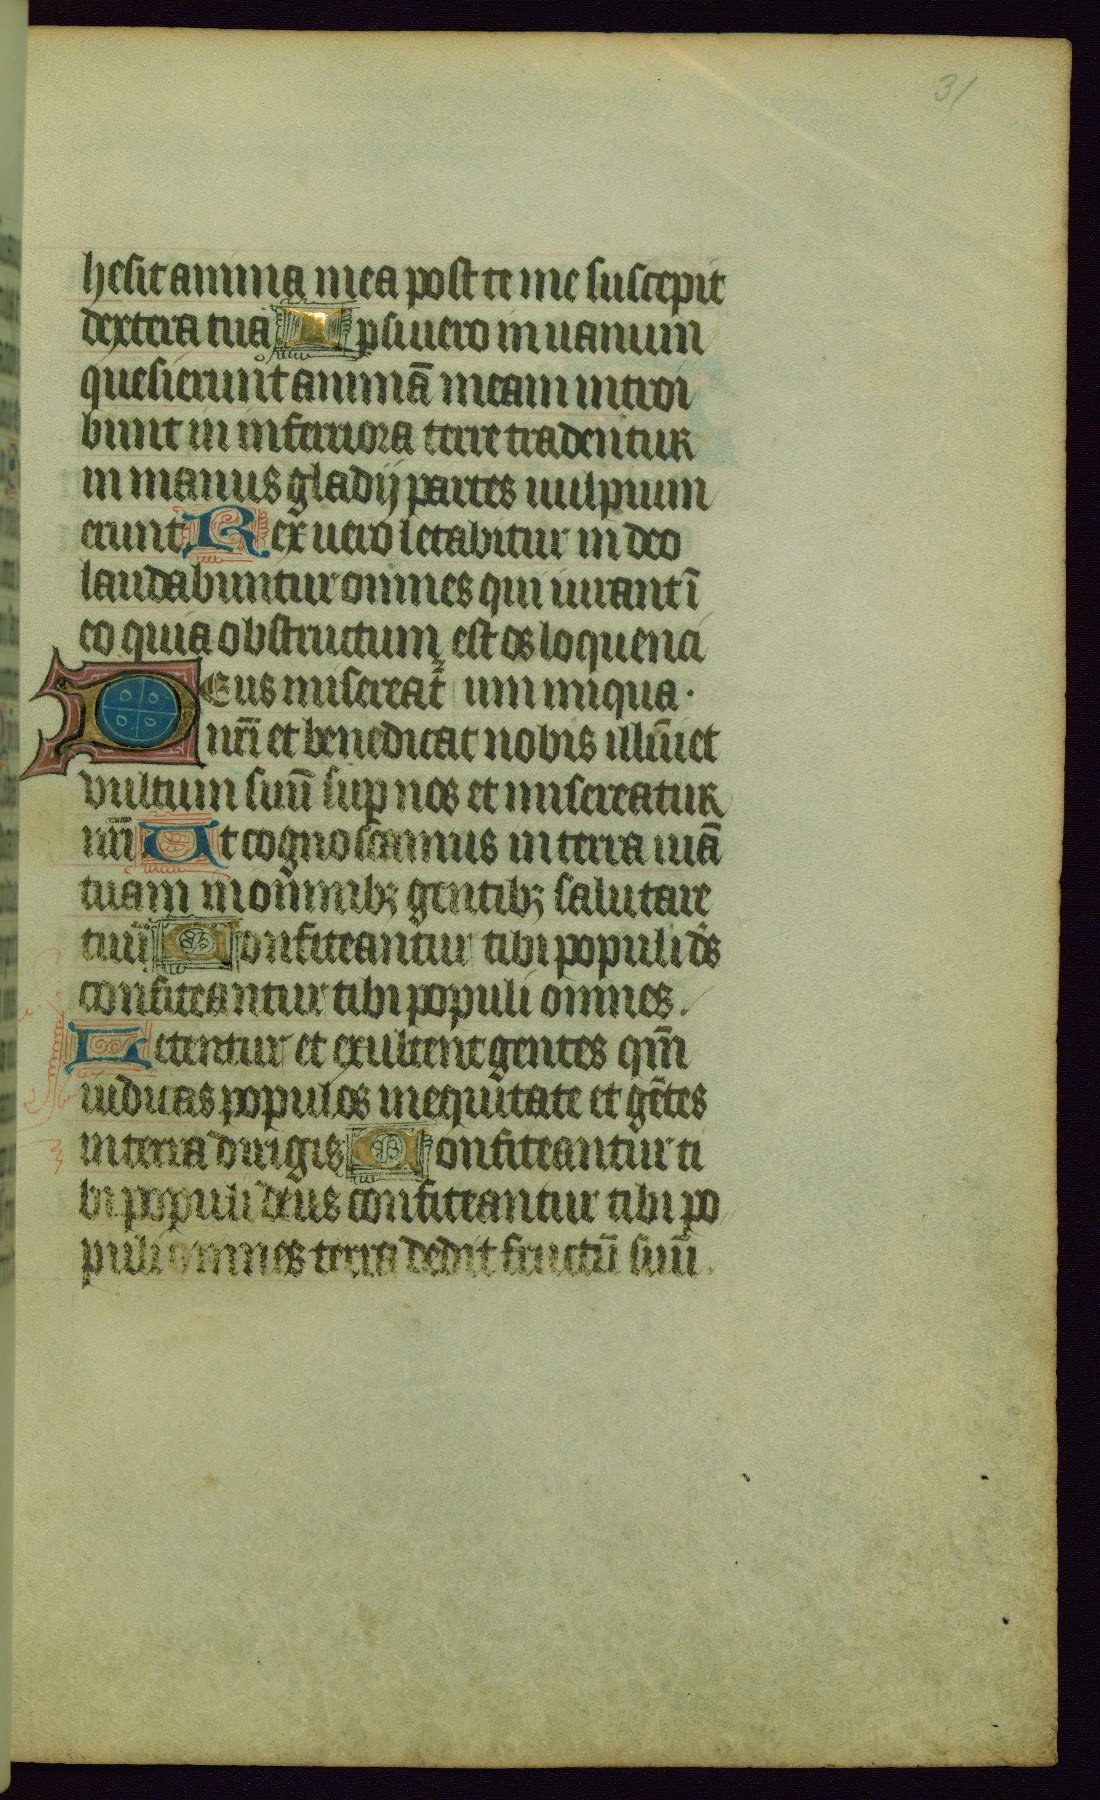 31
hesit anima mea post te me suscepit
dextera tua Ipsi uero in uanum
quesierunt animā meam introi
bunt in inferiora terre tradentur
in manus gladij partes uulpium
erunt Rex uero letabitur in deo
laudabuntur omnes qui iurant ī
eo quia obstructum est os loquenci
Deus misereat̄ um iniqua·
nr̄i et benedicat nobis illūīet
vultum suū sup nos et misereatur
nr̄i Ut cognoscamus in terra uiā
tuam in omnibꝫ gentibꝫ salutare
tuū Confiteantur tibi populi ds̄
confiteantur tibi populi omnes.
Letentur et exultent gentes qm̄
iudicas populos in equitate et gētes
in terra dirigis Confiteantur ti
bi populi deus confiteantur tibi po
puli omnes terra dedit fructū suū.